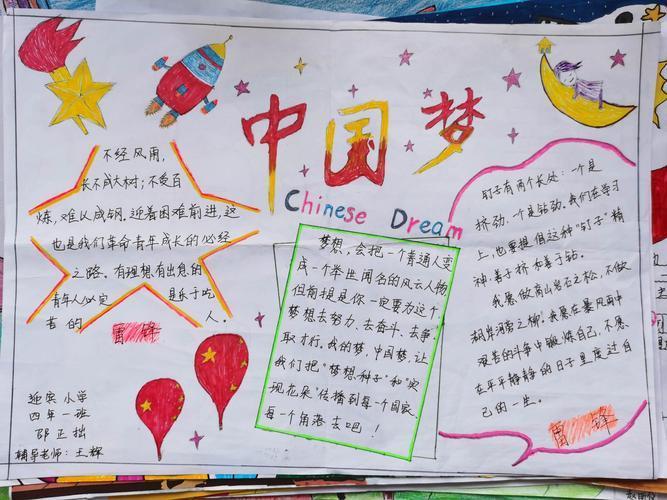 中国梦
Chinese Dream
不经风雨,
长不成大树;不受百
炼,难以成钢。迎着困难前进,这
也是我们革命青年成长的必经
之路。有理想有出息的
青年人必定 是乐于吃
苦的 人。
雷锋
迎宾小学
四年一班
邵正拙
辅导老师:王辉
梦想,会把一个普通人变
成一个举世闻名的风云人物,
但前提是你一定要为这个
梦想去努力、去奋斗、去争
取才行。我的梦,中国梦,让
我们把"梦想种子"和"实
现花朵"传播到每一个国家,
每一个角落去吧!
钉子有两个长处:一个是
挤劲,一个是钻劲。我们在学习
上,也要提倡这种"钉子"精
神,善于挤和善于钻。
我愿做高山岩石之松,不做
湖岸河旁之柳。我愿在暴风雨中
艰苦的斗争中锻炼自己,不愿
在平平静静的日子里度过自
己的一生。
雷锋